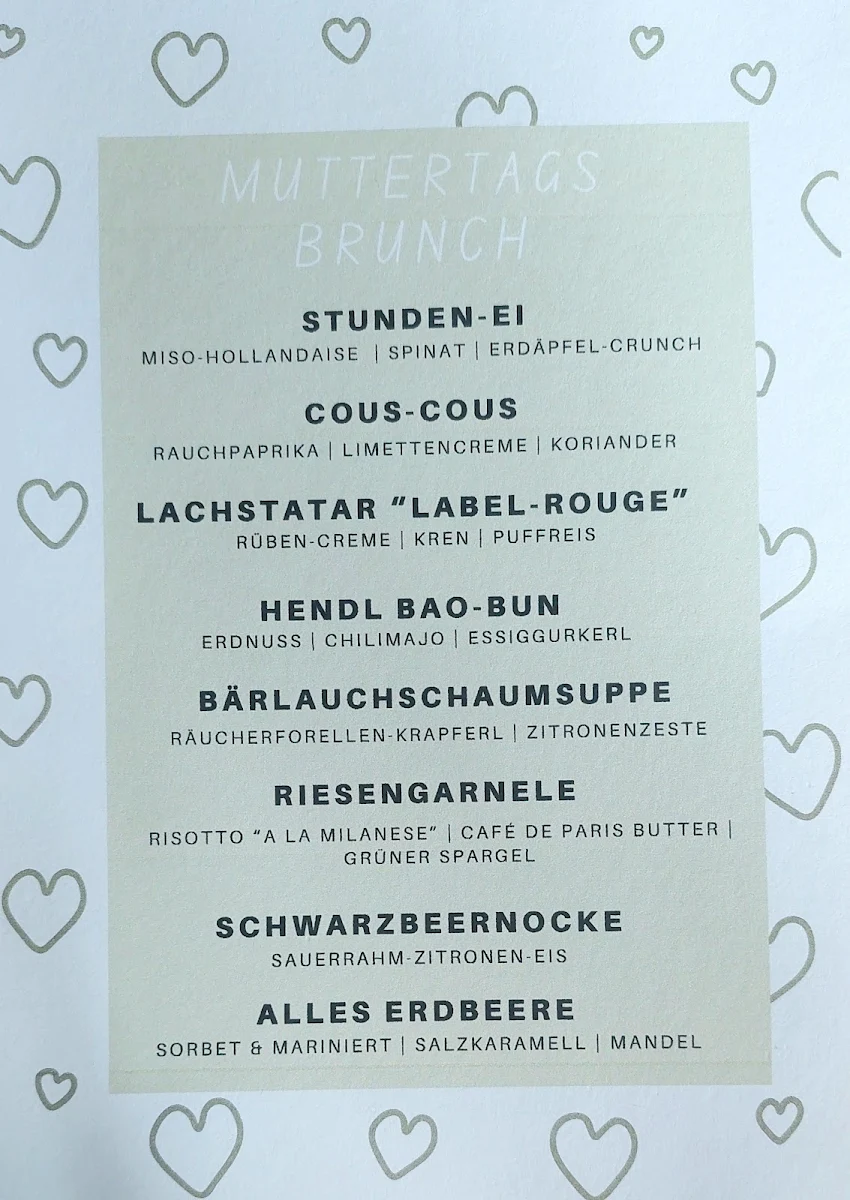 MUTTERTAGS
BRUNCH
STUNDEN-EI
MISO-HOLLANDAISE | SPINAT | ERDÄPFEL-CRUNCH
COUS-COUS
RAUCHPAPRIKA | LIMETTENCREME | KORIANDER
LACHSTATAR "LABEL-ROUGE"
RÜBEN-CREME | KREN | PUFFREIS
HENDL BAO-BUN
ERDNUSS | CHILIMAJO | ESSIGGURKERL
BÄRLAUCHSCHAUMSUPPE
RÄUCHERFORELLEN-KRAPFERL | ZITRONENZESTE
RIESENGARNELE
RISOTTO "A LA MILANESE" | CAFÉ DE PARIS BUTTER |
GRÜNER SPARGEL
SCHWARZBEERNOCKE
SAUERRAHM-ZITRONEN-EIS
ALLES ERDBEERE
SORBET & MARINIERT | SALZKARAMELL | MANDEL